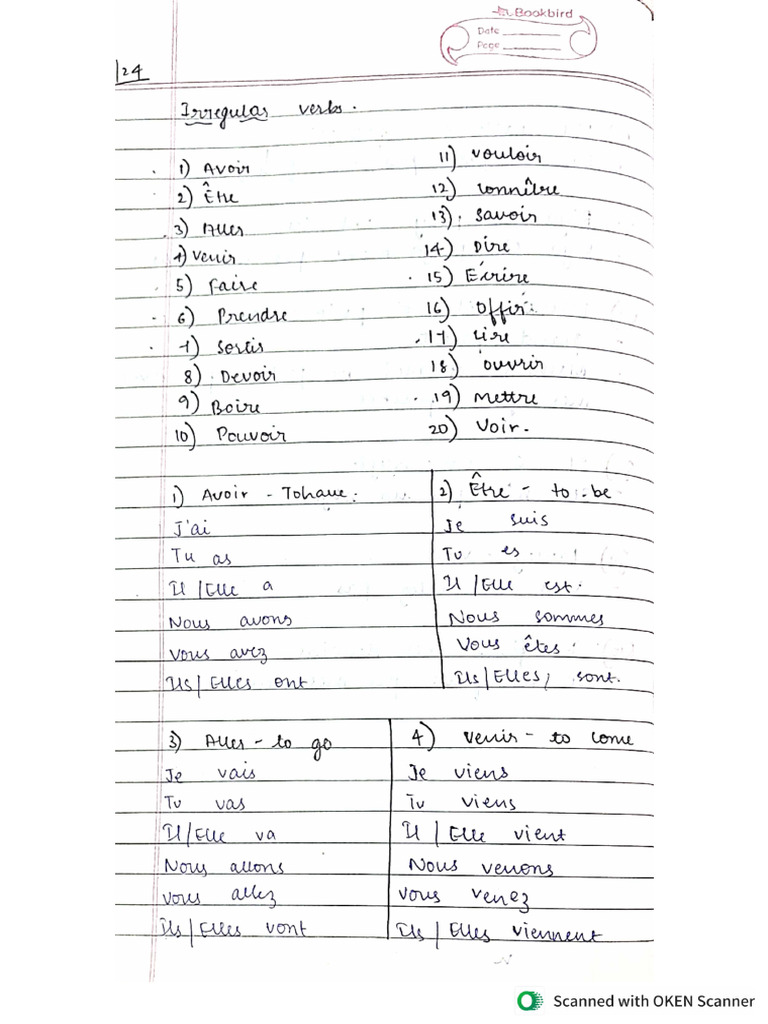 Bookbird
Date
Page
24
Irregular verbs.
1) Avoir
2) Être
3) Aller
4) Venir
5) Faire
6) Prendre
7) Sortir
8) Devoir
9) Boire
10) Pouvoir
11) Vouloir
12) Connître
13) Savoir
14) Dire
15) Écrire
16) Offir
17) Lire
18) Ouvrir
19) Mettre
20) Voir.
1) Avoir - To have:
J'ai
Tu as
Il/Elle a
Nous avons
Vous avez
Ils/Elles ont
2) Être - to be
Je suis
Tu es
Il/Elle est.
Nous sommes
Vous êtes
Ils/Elles, sont.
3) Aller - to go
Je vais
Tu vas
Il/Elle va
Nous allons
Vous allez
Ils/Elles vont
4) Venir - to come
Je viens
Tu viens
Il/Elle vient
Nous venons
Vous venez
Ils/Elles viennent
Scanned with OKEN Scanner